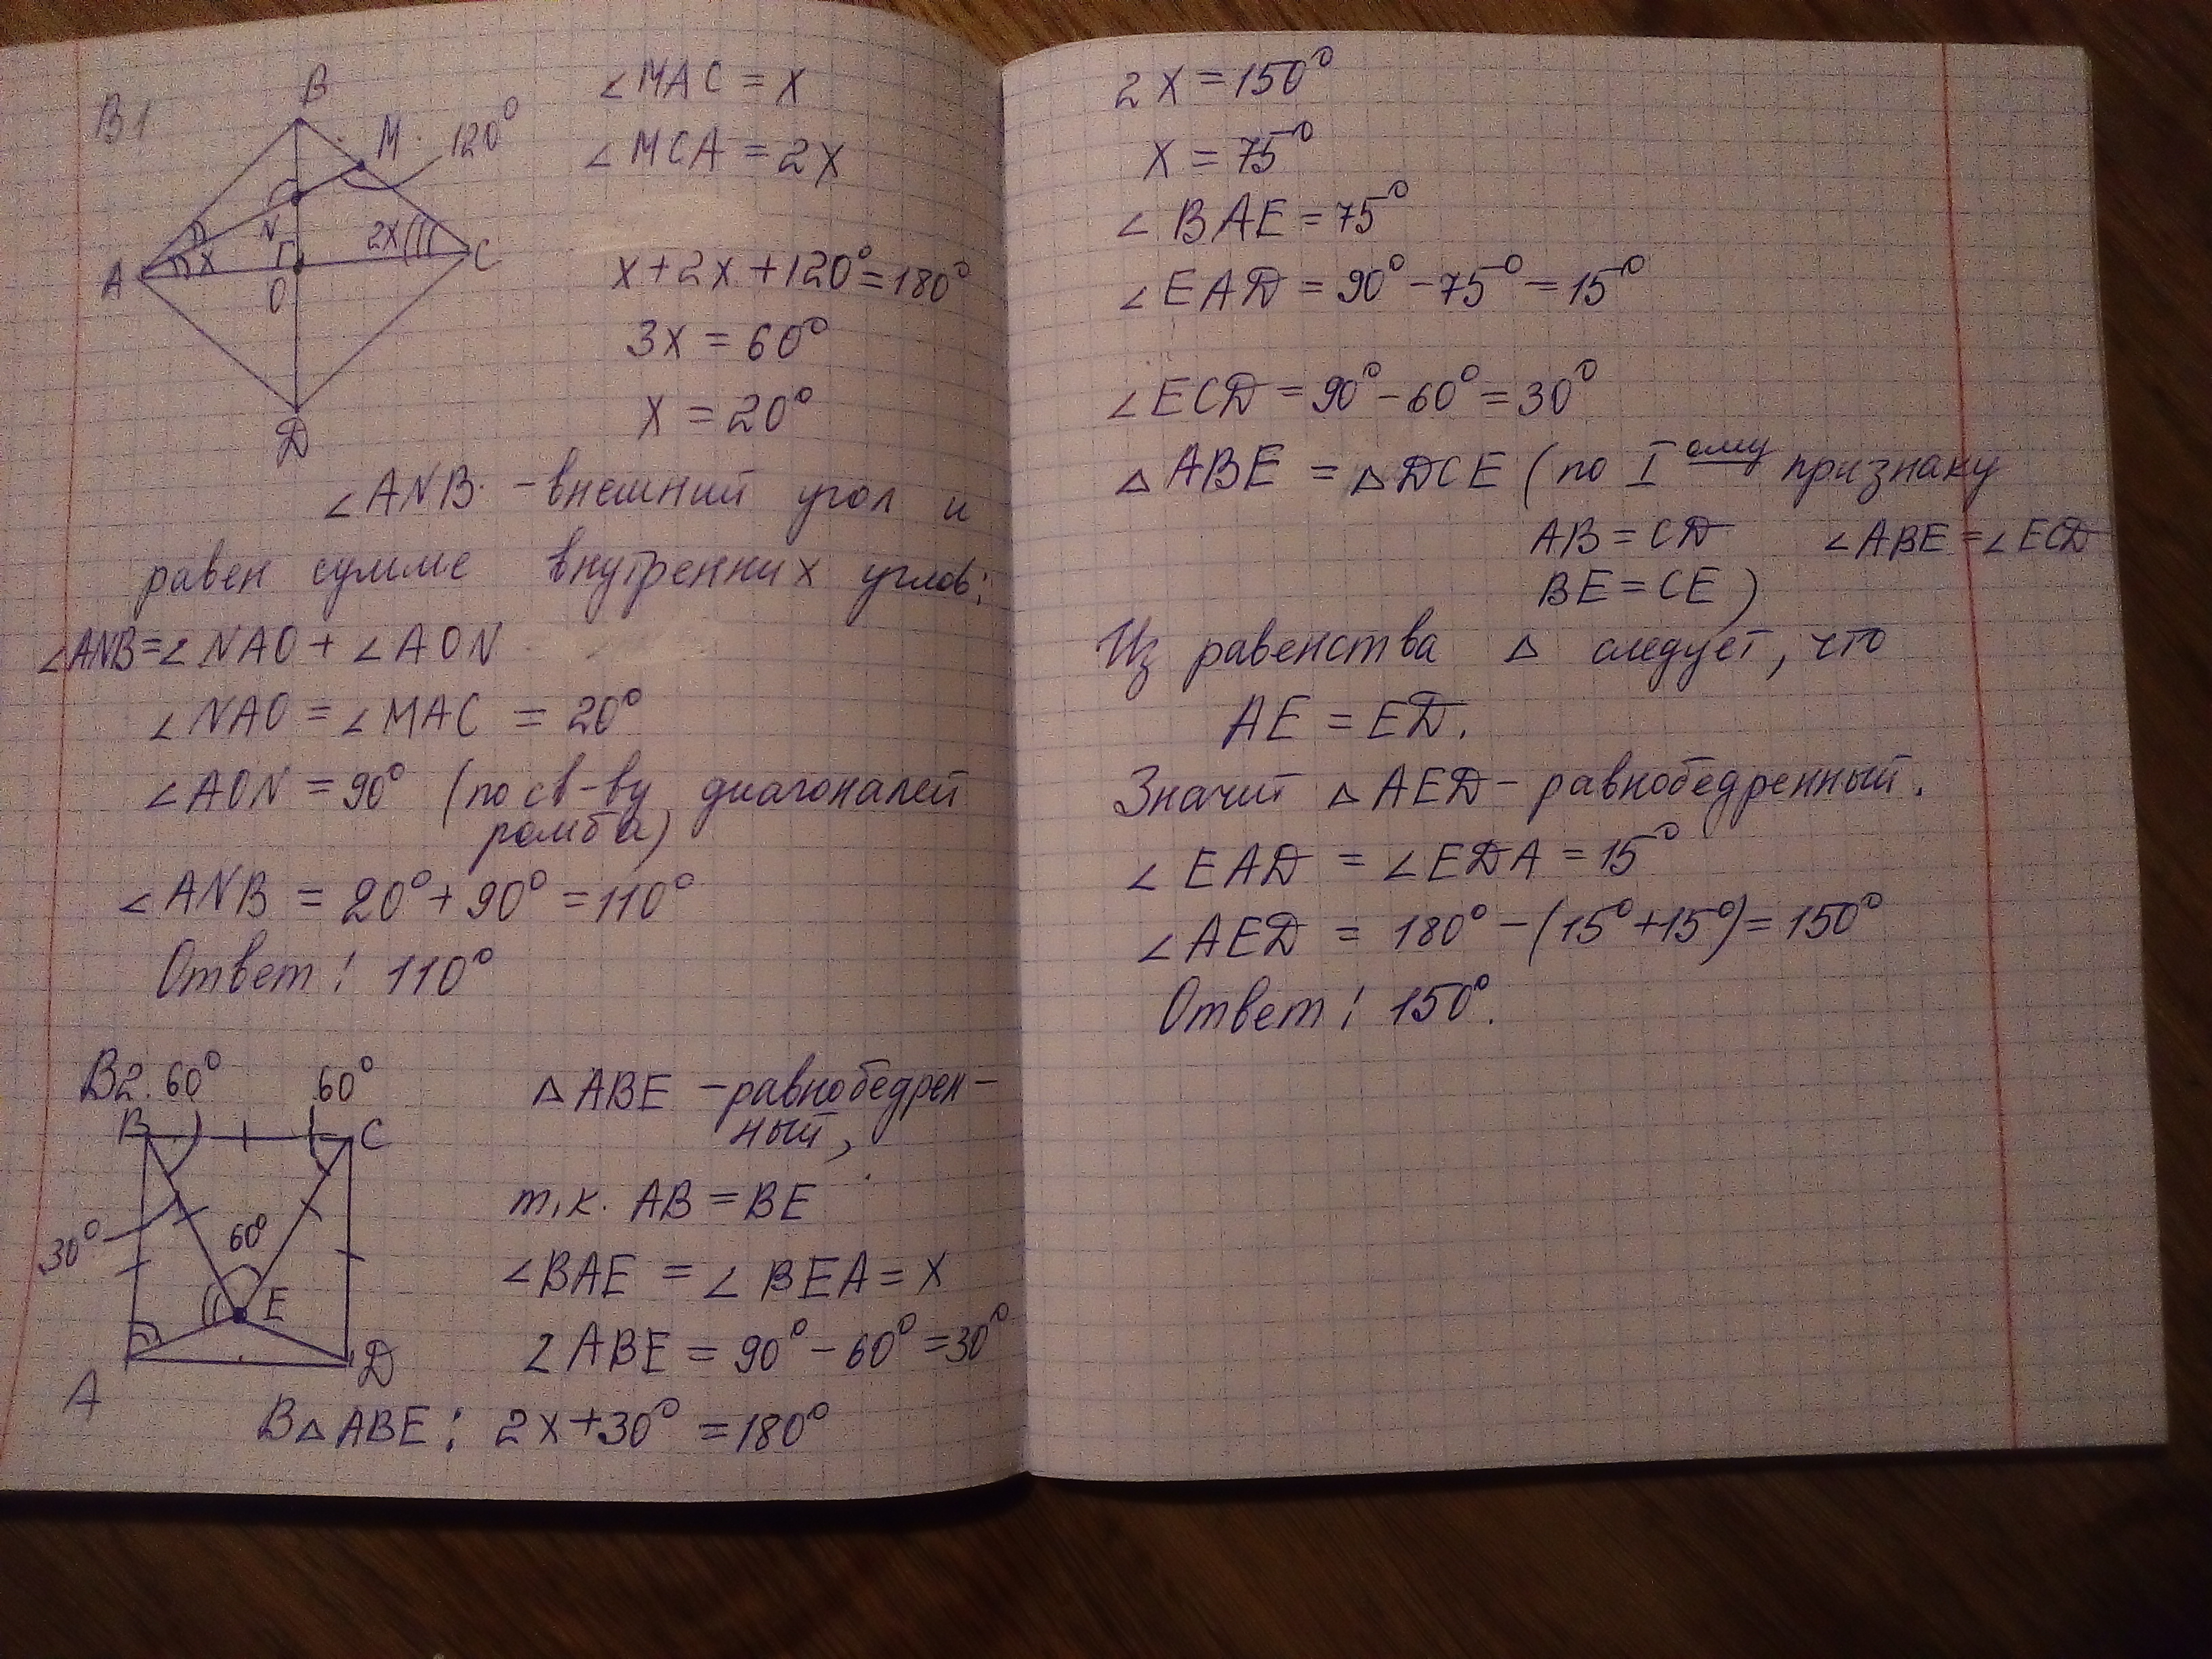 В1
B
M
120°
N
2x
x
A
O
C
D
∠MAC = x
∠MCA = 2x
x+2x+120°=180°
3x = 60°
x = 20°
∠ANB - внешний угол и
равен сумме внутренних углов:
∠ANB=∠NAO + ∠AON
∠NAO = ∠MAC = 20°
∠AON = 90° (по св-ву диагоналей
ромба)
∠ANB = 20°+90°=110°
Ответ: 110°
В2. 60° 60°
B C
30°
60°
E
A
D
△ABE - равнобедрен-
ный,
т.к. AB = BE
∠BAE = ∠BEA = x
∠ABE = 90° - 60° = 30°
В△ABE: 2x+30° = 180°
2x = 150°
x = 75°
∠BAE = 75°
∠EAD = 90° - 75° = 15°
∠ECD = 90° - 60° = 30°
△ABE = △DCE (по I ому признаку
AB = CD ∠ABE = ∠ECD
BE = CE)
Из равенства △ следует, что
AE = ED.
Значит △AED - равнобедренный.
∠EAD = ∠EDA = 15°
∠AED = 180° - (15°+15°) = 150°
Ответ: 150°.